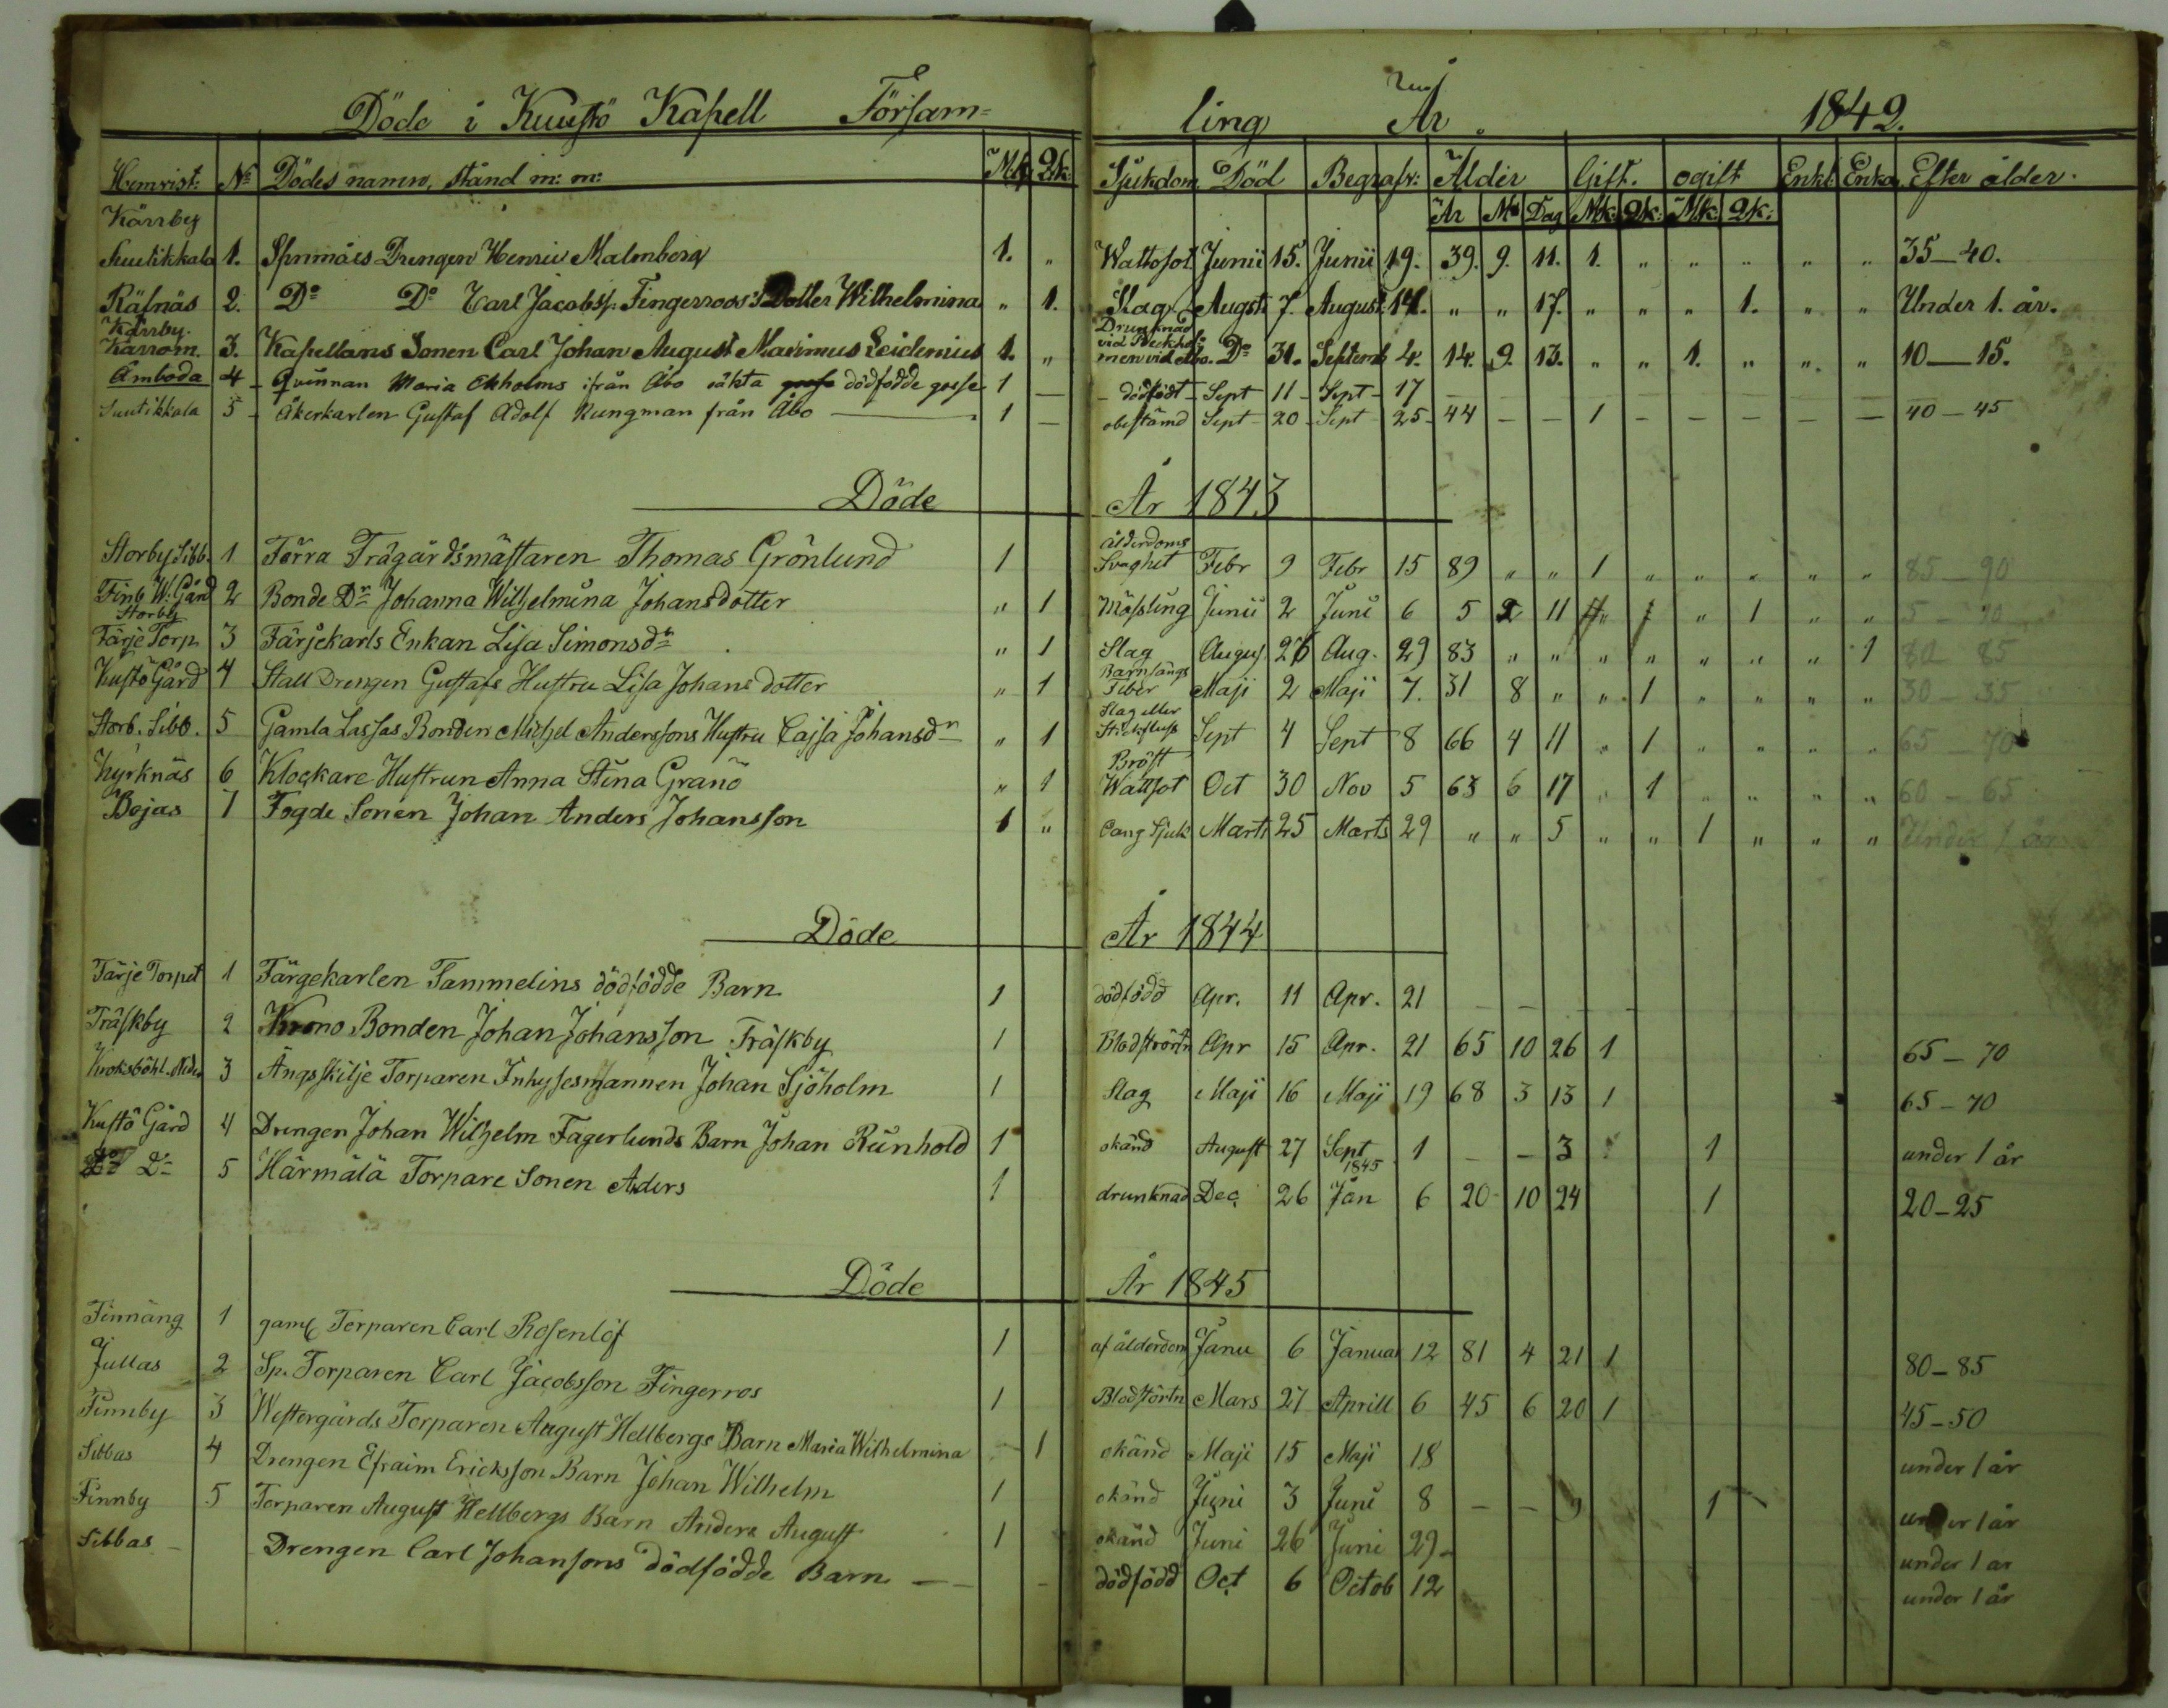 Döde i Kuustö Kapell Församling År 1842.
Hemvist: No Dödes namn, stånd m: m: Mk. Qk. Sjukdom Död Begrafv: Ålder Gift. ogift Enkl. Enka Efter ålder.
År Md Dag Mk: Qk: Mk: Qk:
Kärrby
Suutikkala 1. Spnmåls Drengen Henric Malmberg 1. " Wattosot Junii 15. Junii 19. 39. 9. 11. 1. " " " " " 35-40.
Räfnäs 2. Do Do Carl Jacobss. Fingerroos's Dotter Wilhelmina " 1. Slag Augsti 7. August. 14. " " 17. " " " 1. " " Under 1. år.
Kärrby. Drunknad
Karrom. 3. Kapellans Sonen Carl Johan August Maximus Leidenius 1. " Do 31. Septemb 4. 14. 9. 13. " " 1. " " " 10-15.
Åmboda 4 - Qvinnan Maria Ekholms ifrån Åbo oäkta dödfödde gosse 1 - dödfödt - Sept 11 - Sept - 17
Suutikkala 5 - Åkerkarlen Gustaf Adolf Kungman från Åbo 1 - obestämd Sept - 20 - Sept 25 - 44 - - 1 - - - - - 40-45
Döde År 1843
Storby Sibb. 1 Förra Trägårdsmästaren Thomas Grönlund 1 Ålderdoms Svaghet Febr 9 Febr 15 89 " " 1 " " " " " 85 90
Finb W. Gård 2 Bonde Dr Johanna Wilhelmina Johansdotter " 1 Mässling Junii 2 Juni 6 5 2 11 " " 1 " "
Storby
Färje Torp 3 Färjekarls Enkan Lisa Simonsdr " 1 Slag August 26 Aug. 29 83 " " " " " " " 1 80 85
Kustö Gård 4 Stall Drengen Gustafs Hustru Lisa Johans dotter " 1 Barnsängs Feber Maji 2 Maji 7. 31 8 " " 1 " " " " 30 - 35
Storb. Sibb. 5 Gamla Lassas Bonden Michel Anderssons Hustru Cajsa Johansdr " 1 Slag eller Stickfluss Sept 4 Sept 8 66 4 11 " 1 " " " " 65 - 70
Kyrknäs 6 Klockare Hustrun Anna Stina Granö " 1 Bröst Wattsot Oct 30 Nov 5 63 6 17 " 1 " " " " 60 - 65
Bojas 7 Fogde Sonen Johan Anders Johansson 1 " Mart. 25 Marts 29 " " 5 " " 1 " " " Under 1 år
Döde År 1844
Färje Torpet 1 Färgekarlen Tammelins dödfödde Barn 1 dödfödd Apr. 11 Apr. 21 - -
Träskby 2 Krono Bonden Johan Johansson Träskby 1 Blodströrtn Apr 15 Apr. 21 65 10 26 1 65-70
Kroksböhl. Neder 3 Ängsskilje Torparen Inhysesmannen Johan Sjöholm 1 Slag Maji 16 Maji 19 68 3 13 1 65-70
Kustö Gård 4 Drengen Johan Wilhelm Fagerlunds Barn Johan Reinhold 1 okänd August 27 Sept 1 - - 3 1 under 1 år
Do Do 5 Härmälä Torpare Sonen Anders 1 drunknad Dec. 26 1845 Jan 6 20 10 24 1 20-25
Döde År 1845
Finnäng 1 gaml Torparen Carl Rosenlöf 1 af ålderdom Janu 6 Januar 12 81 4 21 1 80-85
Jullas 2 Sp. Torparen Carl Jacobsson Fingerros 1 Blodstörtn Mars 27 Aprill 6 45 6 20 1 45-50
Finnby 3 Westergårds Torparen August Hellbergs Barn Maria Wilhelmina - 1 okänd Maji 15 Maji 18 under 1 år
Sibbas 4 Drengen Efraim Ericksson Barn Johan Wilhelm 1 okänd Juni 3 Juni 8 - - 9 1 under 1 år
Finnby 5 Torparen August Hellbergs Barn Anders August 1 okänd Juni 26 Juni 29 - under 1 år
Sibbas - Drengen Carl Johansons dödfödde Barn - - dödfödd Oct 6 Octob 12 under 1 år